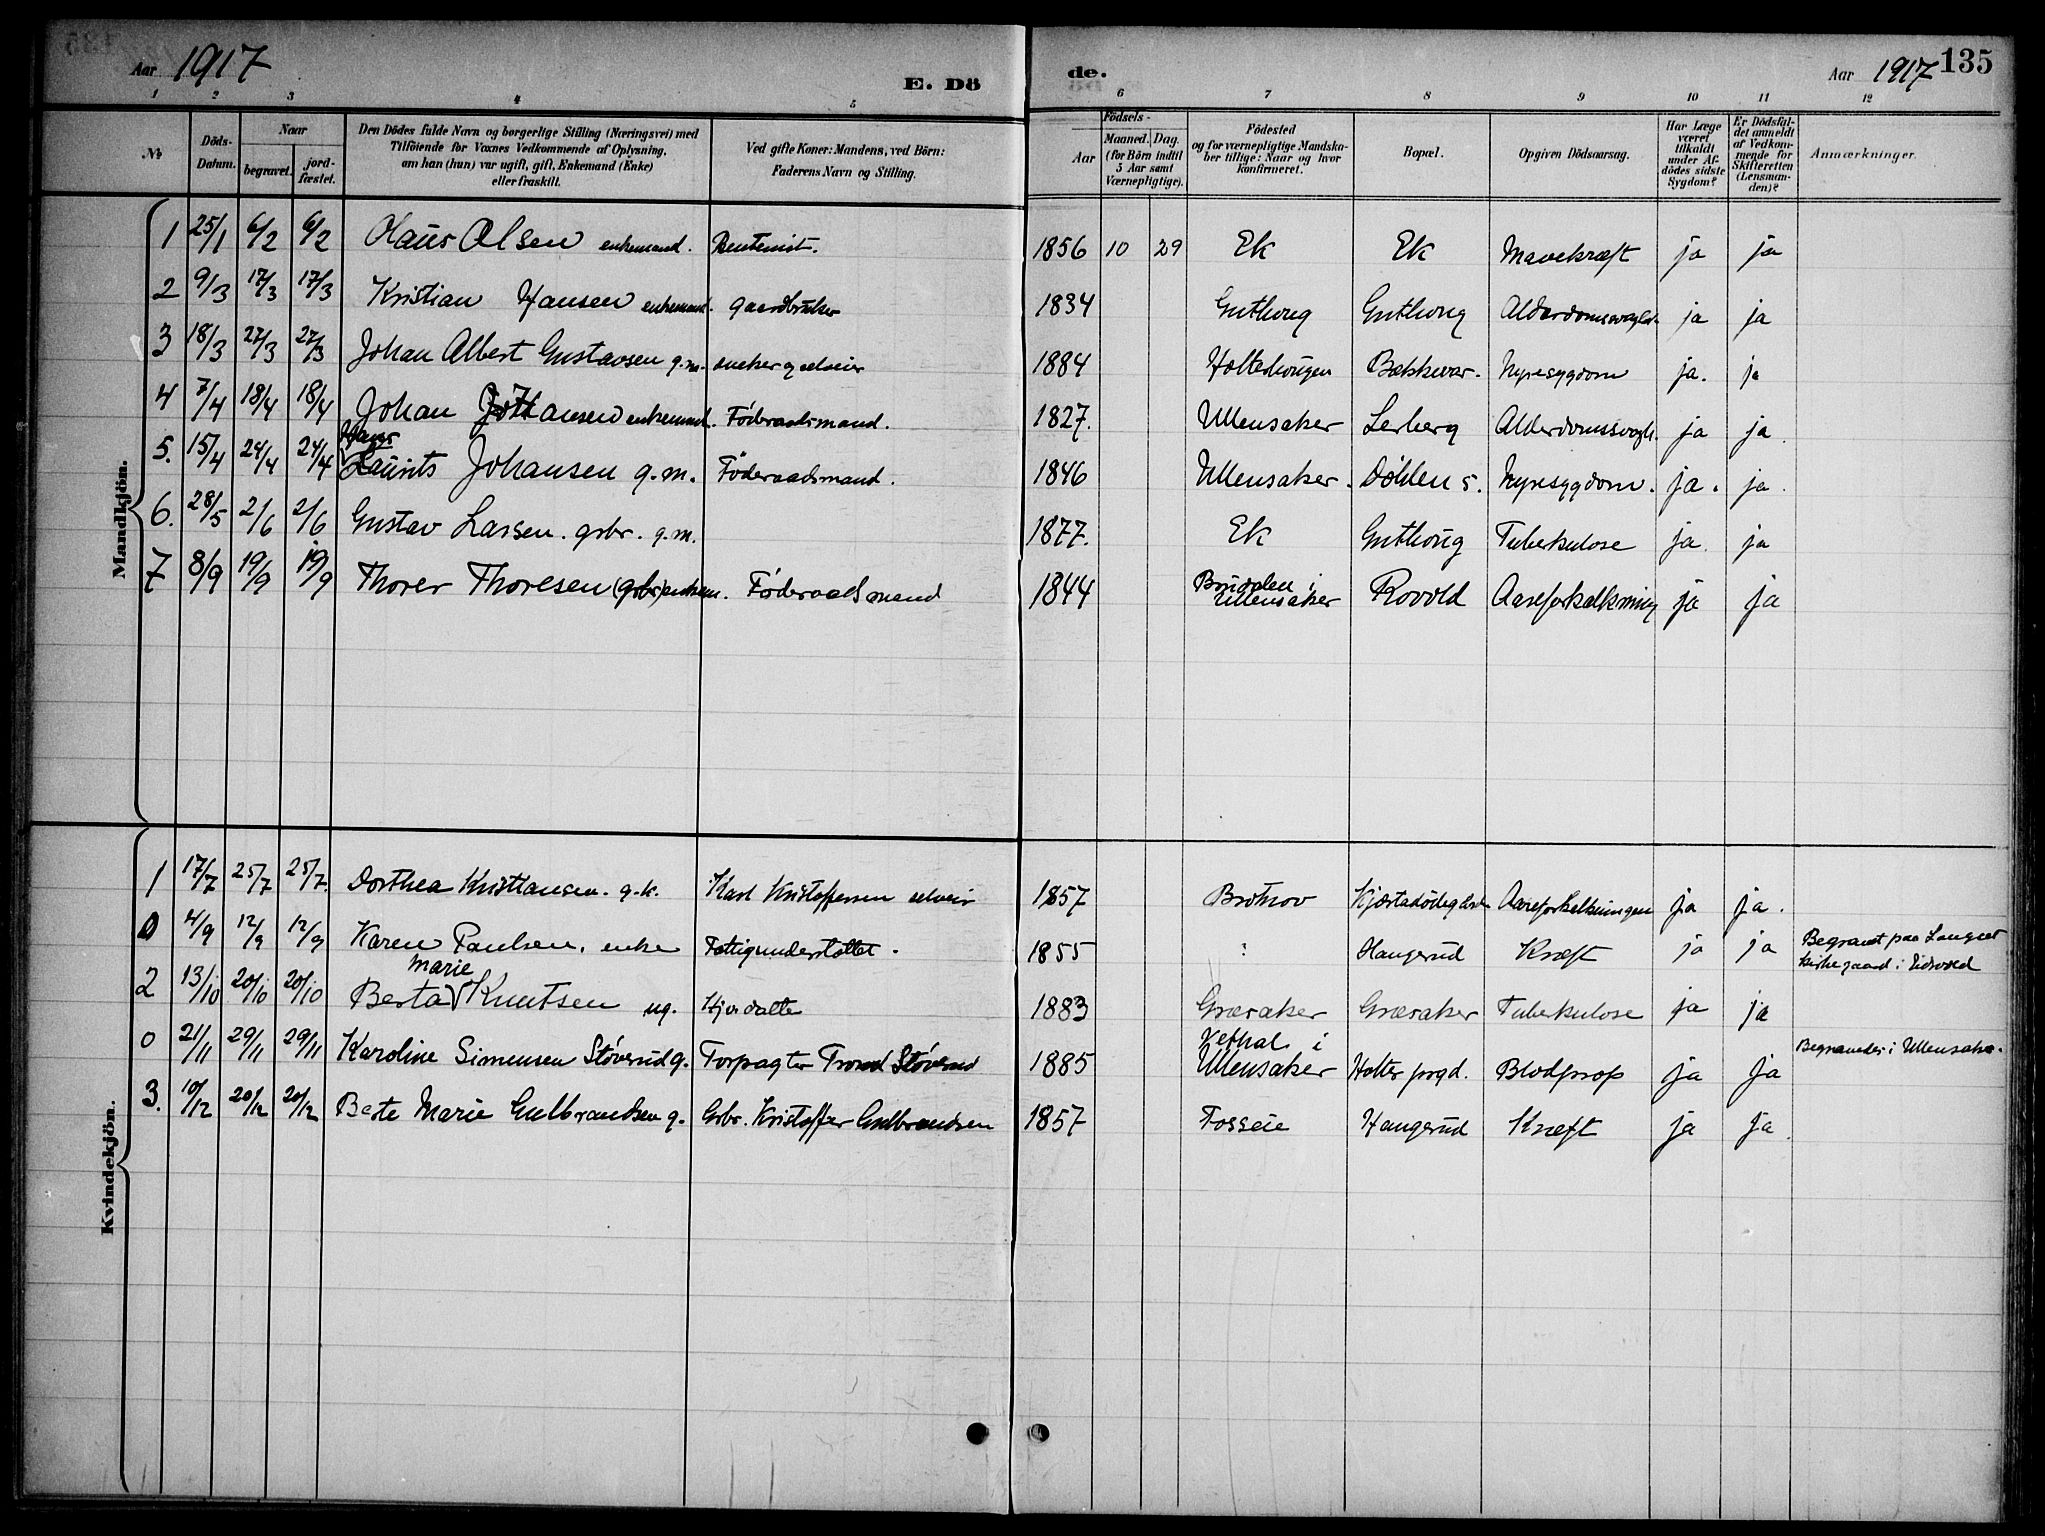 Aar 1917
E. Dö
de.
Aar 1917
135
1 2 3 4 5 6 7 8 9 10 11 12
No
Döds-
Datum.
Naar
begravet.
jord-
fæstet.
Den Dödes fulde Navn og borgerlige Stilling (Næringsvei) med
Tilföiende for Voxnes Vedkommende af Oplysning,
om han (hun) var ugift, gift, Enkemand (Enke)
eller fraskilt.
Ved gifte Koner: Mandens, ved Börn:
Faderens Navn og Stilling.
Födsels-
Aar
Maaned. Dag.
(for Börn indtil
5 Aar samt
Værnepligtige).
Födested
og for værnepligtige Mandska-
ber tillige: Naar og hvor
konfirmeret.
Bopæl.
Opgiven Dödsaarsag.
Har Læge
været
tilkaldt
under Af-
dödes sidste
Sygdom?
Er Dödsfal-
det anmeldt
af Vedkom-
mende for
Skifteretten
(Lensman-
den)?
Anmærkninger.
Mandkjön.
1 25/1 6/2 6/2 Olaus Olsen enkemand. Rentenist. 1856 10 29 Ek Ek Mavekræft ja ja
2 9/3 17/3 17/3 Kristian Hansen enkemand. gaardbruker 1834 Gutthoug Gutthoug ja ja
3 18/3 27/3 27/3 Johan Albert Gustavsen g.m. snekker og selveier 1884 Holterhougen Bækkevar. Nyresygdom ja. ja
4 7/4 18/4 18/4 Johan Hansen enkemand. Föderaadsmand. 1827. Ullensaker Lerberg Alderdomssvagh. ja ja.
Hans
5. 15/4 24/4 24/4 Laurits Johansen g.m. Föderaadsmand. 1846 Ullensaker. Döhlen s. Nyresygdom. ja. ja.
6. 28/5 2/6 2/6 Gustav Larsen. grbr. g.m. 1877. Ek Gutthoug Tuberkulose ja. ja
7 8/9 19/9 19/9 Thorer Thoresen (grbr) enkem. Föderaadsmand 1844 i Ullensaker Rovold Aareforkalkning ja ja
Kvindekjön.
1 17/7 25/7 25/7. Dorthea Kristiansen. g.k. Karl Kristoffersen selveier 1857 Brotnov Aareforkalkningen ja ja.
0 4/9 12/9 12/9 Karen Paulsen. enke Fattigunderstöttet. 1855 : Haugerud Kræft ja ja Begravet paa Langset
kirkegaard i Eidsvold
Marie
2 13/10 20/10 20/10 Berta Knutsen ug. 1883 Græsaker Græsaker Tuberkulose ja ja
0 21/11 29/11 29/11 Karoline Simensen Støverud g. Forpagter Trond Støverud 1885 i
Ullensaker Holter prgd. Blodprop ja ja Begravedes i Ullensaker.
3. 10/12 20/12 20/12 Berte Marie Gulbrandsen g. Grbr. Kristoffer Gulbrandsen 1857 Fosseie Haugerud Kræft ja ja.